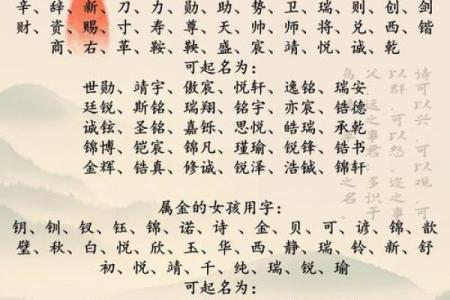 辛、辞、新、刀、力、勋、助、势、卫、瑞、则、创、剑
财、资、赐、寸、寿、尊、天、帅、师、将、兑、西、锴
商、右、革、鞍、鞅、盛、宸、靖、悦、诚、乾
可起名为：
世勋、靖宇、傲宸、悦轩、逸铭、瑞安
廷锐、斯铭、瑞翔、铭宇、亦宸、锆德
诚铉、圣铭、嘉铄、思悦、皓瑞、承乾
锦博、铠宸、锦凡、瑾瑜、锐锋、锆书
金辉、锆真、修诚、锐泽、浩铖、锦轩
属金的女孩用字：
钥、钏、钗、钰、锦、诺、诗、金、贝、可、谚、锦、歆
璧、秋、白、悦、欣、玉、华、西、静、瑞、铃、新、舒
初、悦、靖、千、纯、瑞、锐、瑜
可起名为：
诗可以兴，可以观，可
以群，可以怨。迩之事
父，远之事君；多识于